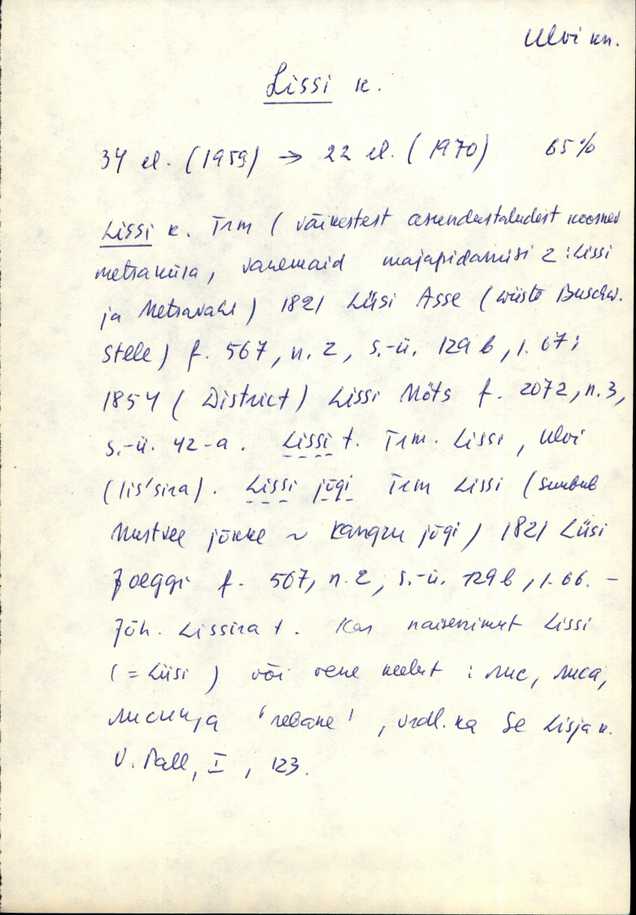 Ulvi kn.
Lissi k.
34 el. (1959) → 22 el. (1970) 65%
Lissi k. Trm (väikestest asundustaludest koosnev
metsaküla, vanemaid majapidamisi 2: Lissi
ja Metsavahi) 1821 Lüsi Asse (wüste Buschw.
stelle) f. 567, n. 2, s.-ü. 129 b, l. 67;
1854 (District) Lissi Möts f. 2072, n. 3,
s.-ü. 42-a. Lissi t. Trm. Lissi, Ulvi
(lis'sira). Lissi jõgi Trm Lissi (suubub
Mustvee jõkke ~ Kangru jõgi) 1821 Lüsi
Joeggi f. 567, n. 2, s.-ü. 129 b, l. 66. –
Jõh. Lissira t. Kas naisenimest Lissi
(= Liisi) või vene keelest: лис, лиса,
лисица 'rebane', vrdl. ka Se Lisja k.
V. Pall, I, 123.